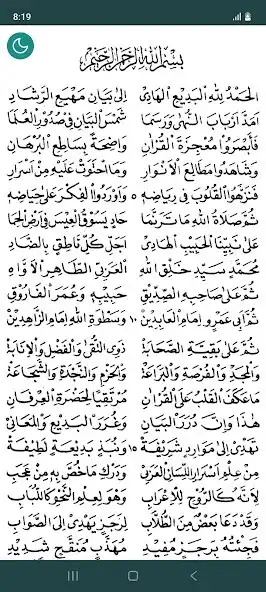 8:19
بسم الله الرحمن الرحيم
الحمد لله البديع الهادي إلى بيان مهيع الرشاد
أمد أرباب النهى ورسما شمس البيان في صدور العلما
فأبصروا معجزة القران واضحة بساطع البرهان
وشاهدوا مطالع الأنوار وما احتوت عليه من أسرار
فنزهوا القلوب في رياضه ٥ وأوردوا الفكر على حياضه
ثم صلاة الله ما ترنما حاد يسوق العيس في أرض الحما
على نبينا الحبيب الهادي أجل كل ناطق بالضاد
محمد سيد خلق الله العربي الطاهر الأواه
ثم على صاحبه الصديق حبيبه وعمر الفاروق
ثم أبي عمرو إمام العابدين ١٠ وسطوة الله إمام الزاهدين
ثم على بقية الصحابة ذوي التقى والفضل والإنابة
والمجد والفرصة والبراعة والحزم والنجدة والشجاعة
ما عكف القلب على القران مرتقيا لحضرة العرفان
هذا وإن درر البيان وغرر البديع والمعاني
تهدي إلى موارد شريفة ١٥ ونبذ بديعة لطيفة
من علم أسرار اللسان العربي ودرك ما خص به من عجب
لأنه كالروح للإعراب وهو لعلم النحو كاللباب
وقد دعا بعض من الطلاب لرجز يهدي إلى الصواب
فجئته برجز مفيد مهذب منقح سديد